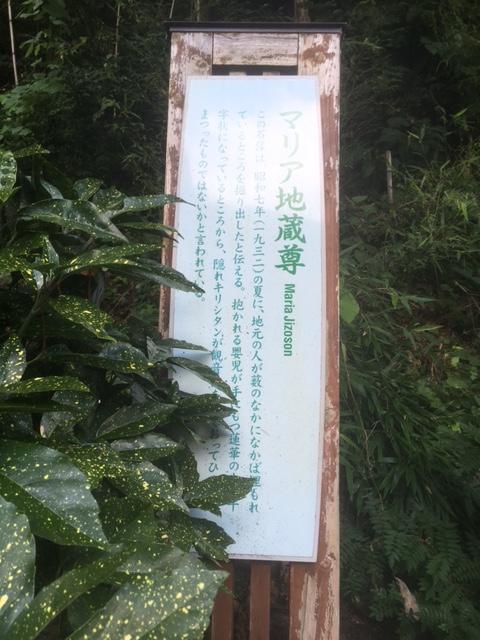 マリア地蔵尊 Maria Jizoson
この石像は、昭和七年(一九三二)の夏に、地元の人が薮のなかになかば埋もれ
ているところを掘り出したと伝える。抱かれる嬰児が手にもつ蓮華の
字状になっているところから、隠れキリシタンが観音 ってひ
まつったものではないかと言われている。